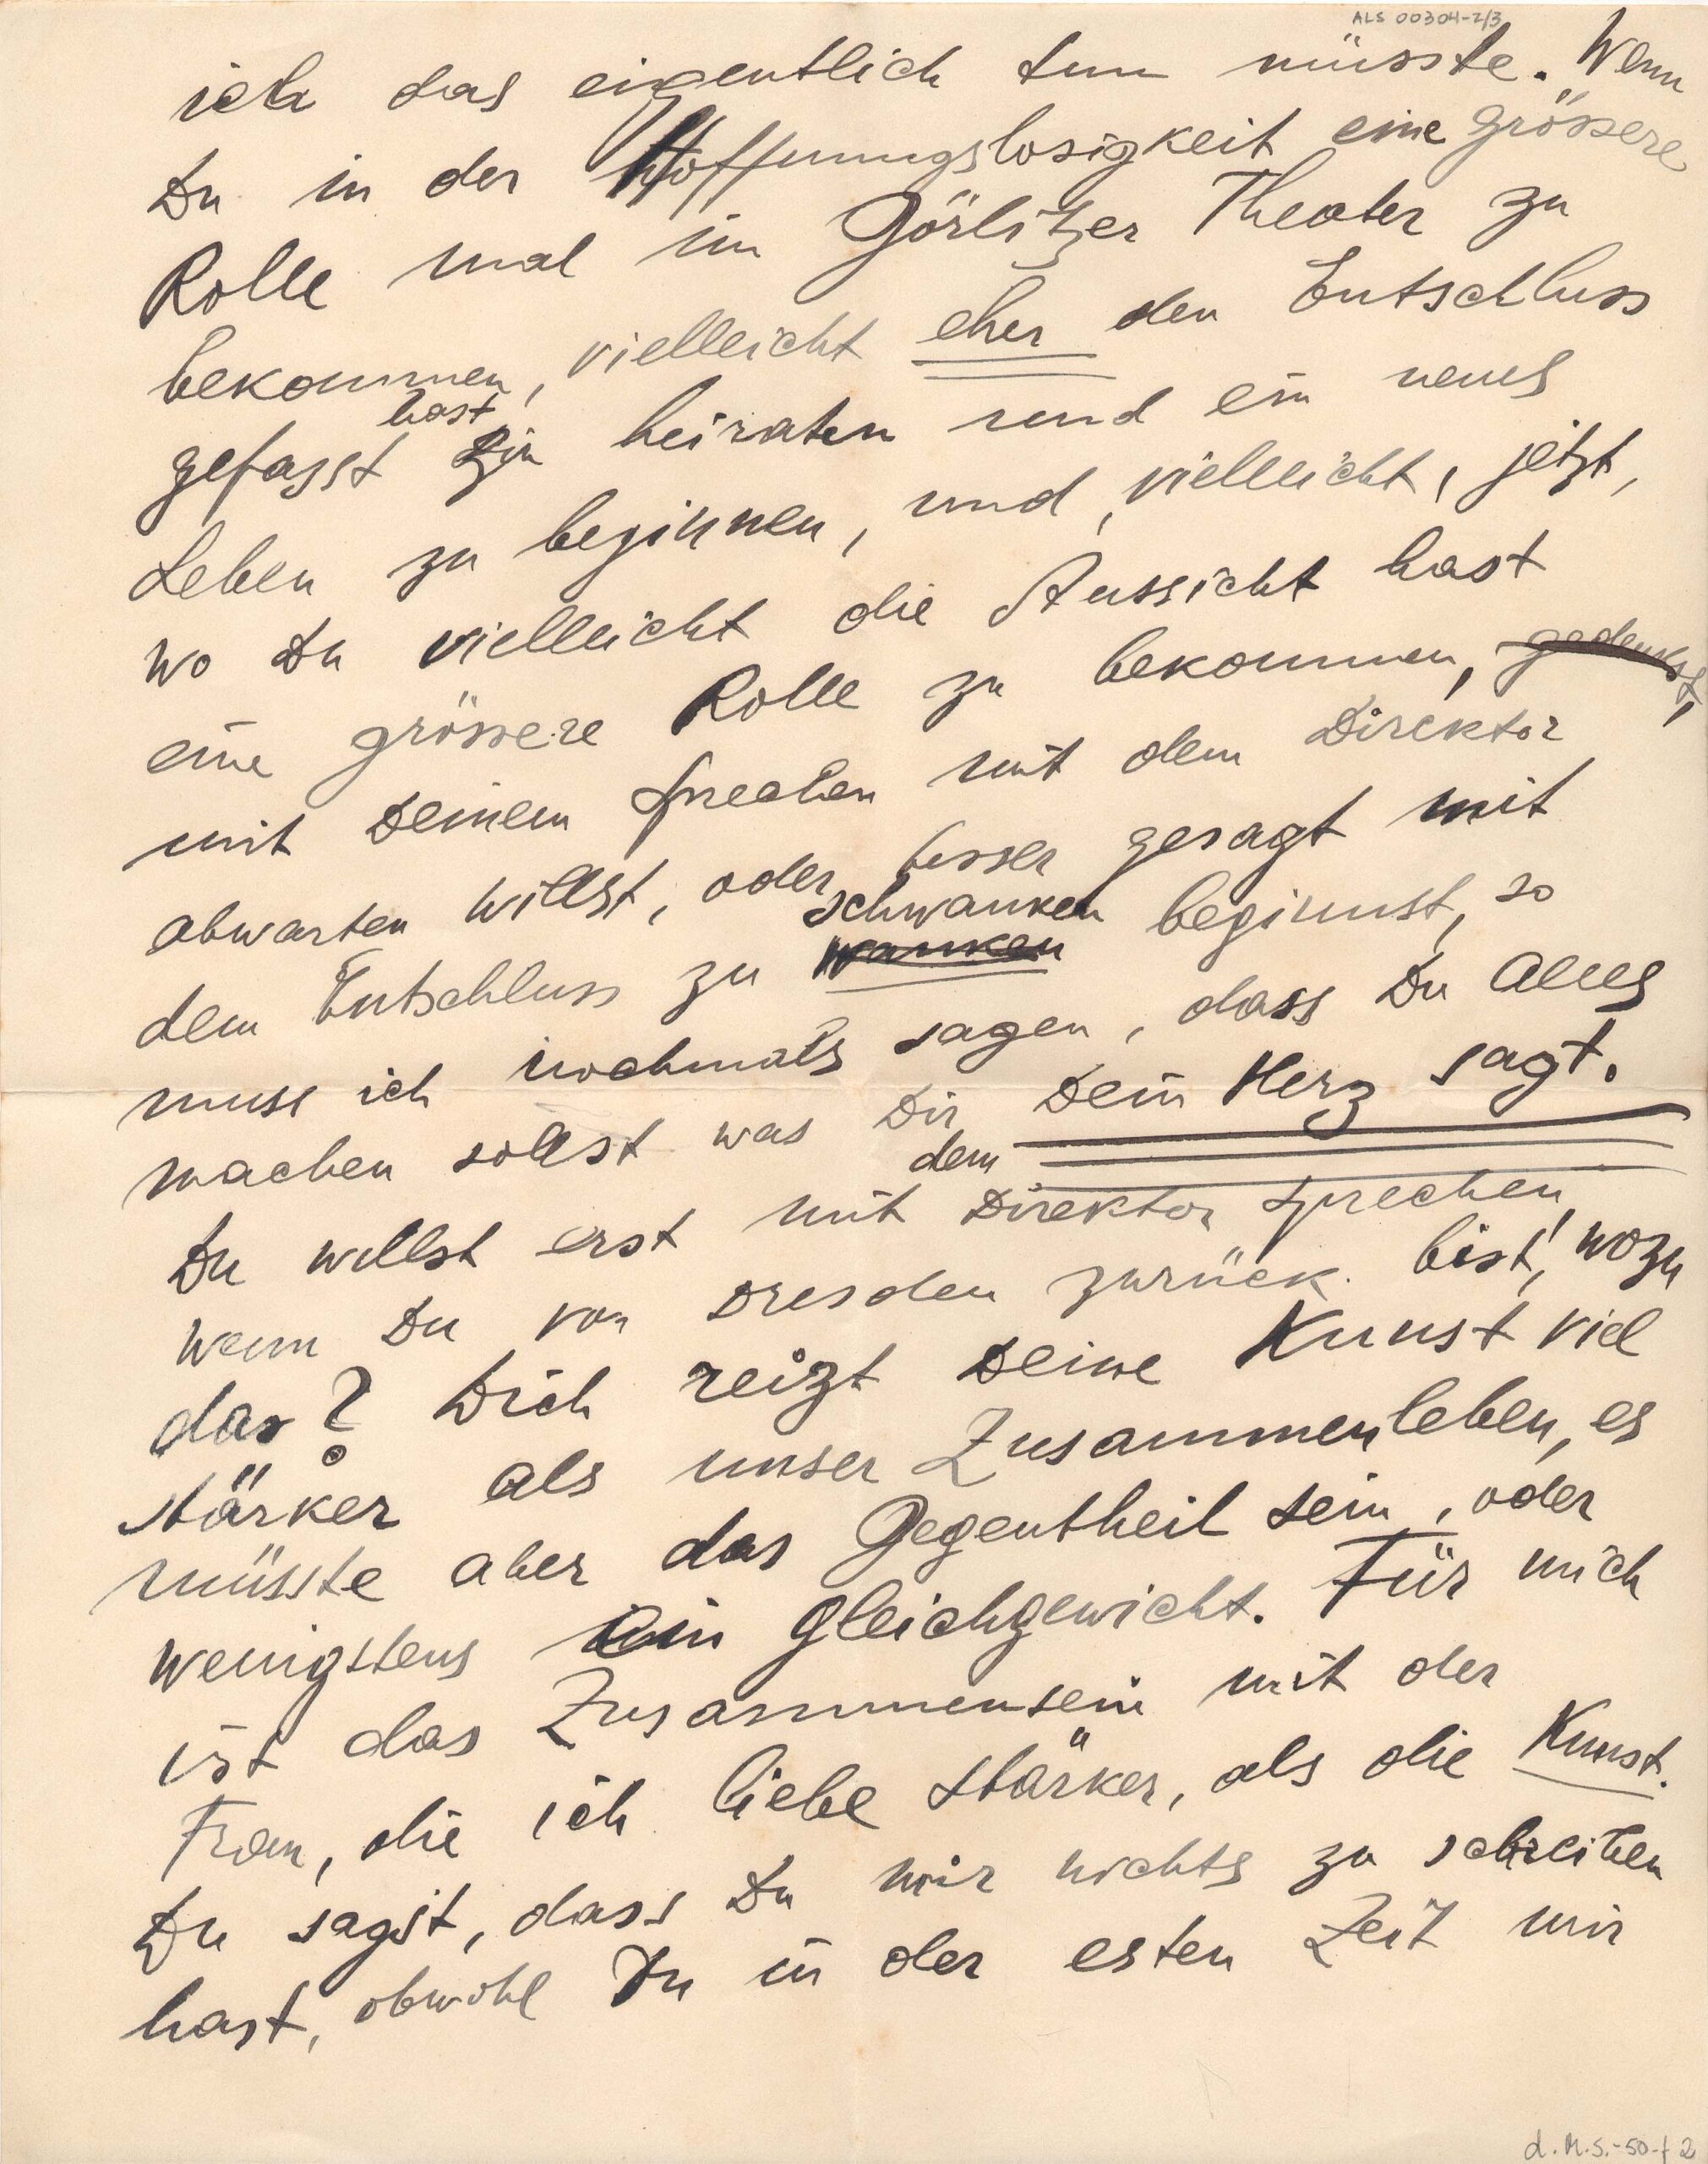 ALS 00304-2/3
ich das eigentlich tun müsste. Wenn
Du in der Hoffnungslosigkeit eine grössere
Rolle mal im Görlitzer Theater zu
bekommen, vielleicht eher den Entschluss
gefasst hast zu heiraten und ein neues
Leben zu beginnen, und, vielleicht, jetzt,
wo Du vielleicht die Aussicht hast
eine grössere Rolle zu bekommen, gedenkst,
mit Deinem Sprechen mit dem Direktor
abwarten willst, oder besser gesagt mit
dem Entschluss zu wanken schwanken beginnst, so
muss ich nochmals sagen, dass Du Alles
machen sollst was Dir Dein Herz sagt.
Du willst erst mit dem Direktor sprechen,
wenn Du von Dresden zurück bist, wozu
das? Dich reizt Deine Kunst viel
stärker als unser Zusammenleben, es
müsste aber das Gegentheil sein, oder
wenigstens ein Gleichgewicht. Für mich
ist das Zusammensein mit der
Frau, die ich liebe stärker, als die Kunst.
Du sagst, dass Du mir nichts zu schreiben
hast, obwohl Du in der esten Zeit mir
d.M.S.-50-f2